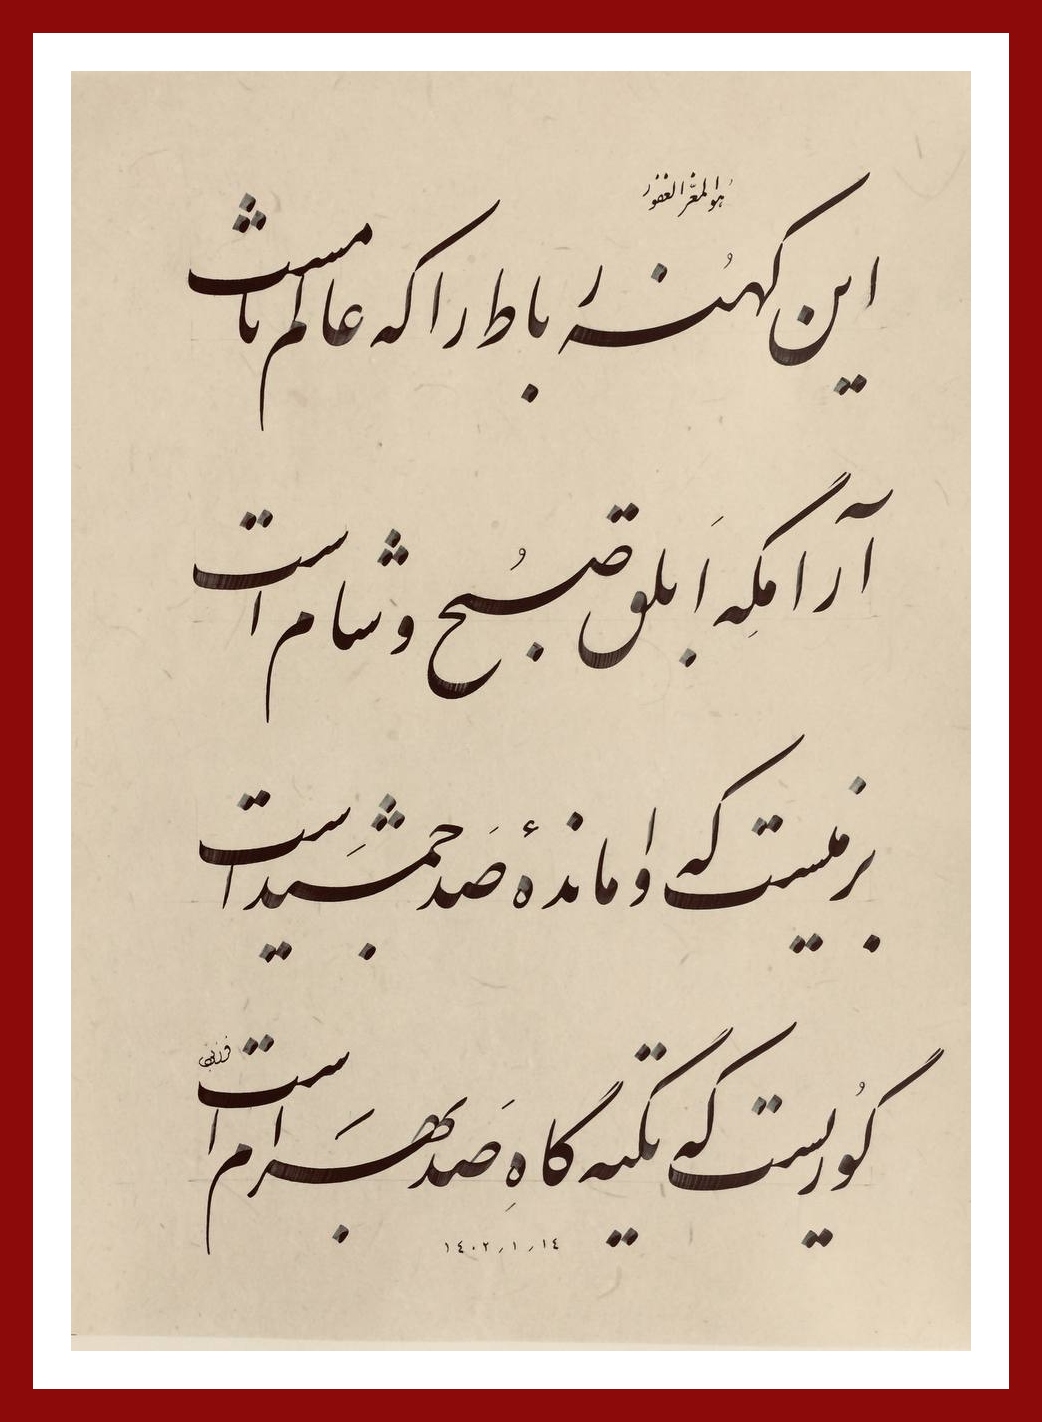 هُوالمعزّ الغفور
این کهُنه رُباط را که عالم نامست
آرامگهِ اَبلق صُبح و شام است
بزمیست که واماندهٔ صَد جمشید است
گُوریست که تکیه گاهِ صَد بهَرام است
١٤٠٢/١/١٤